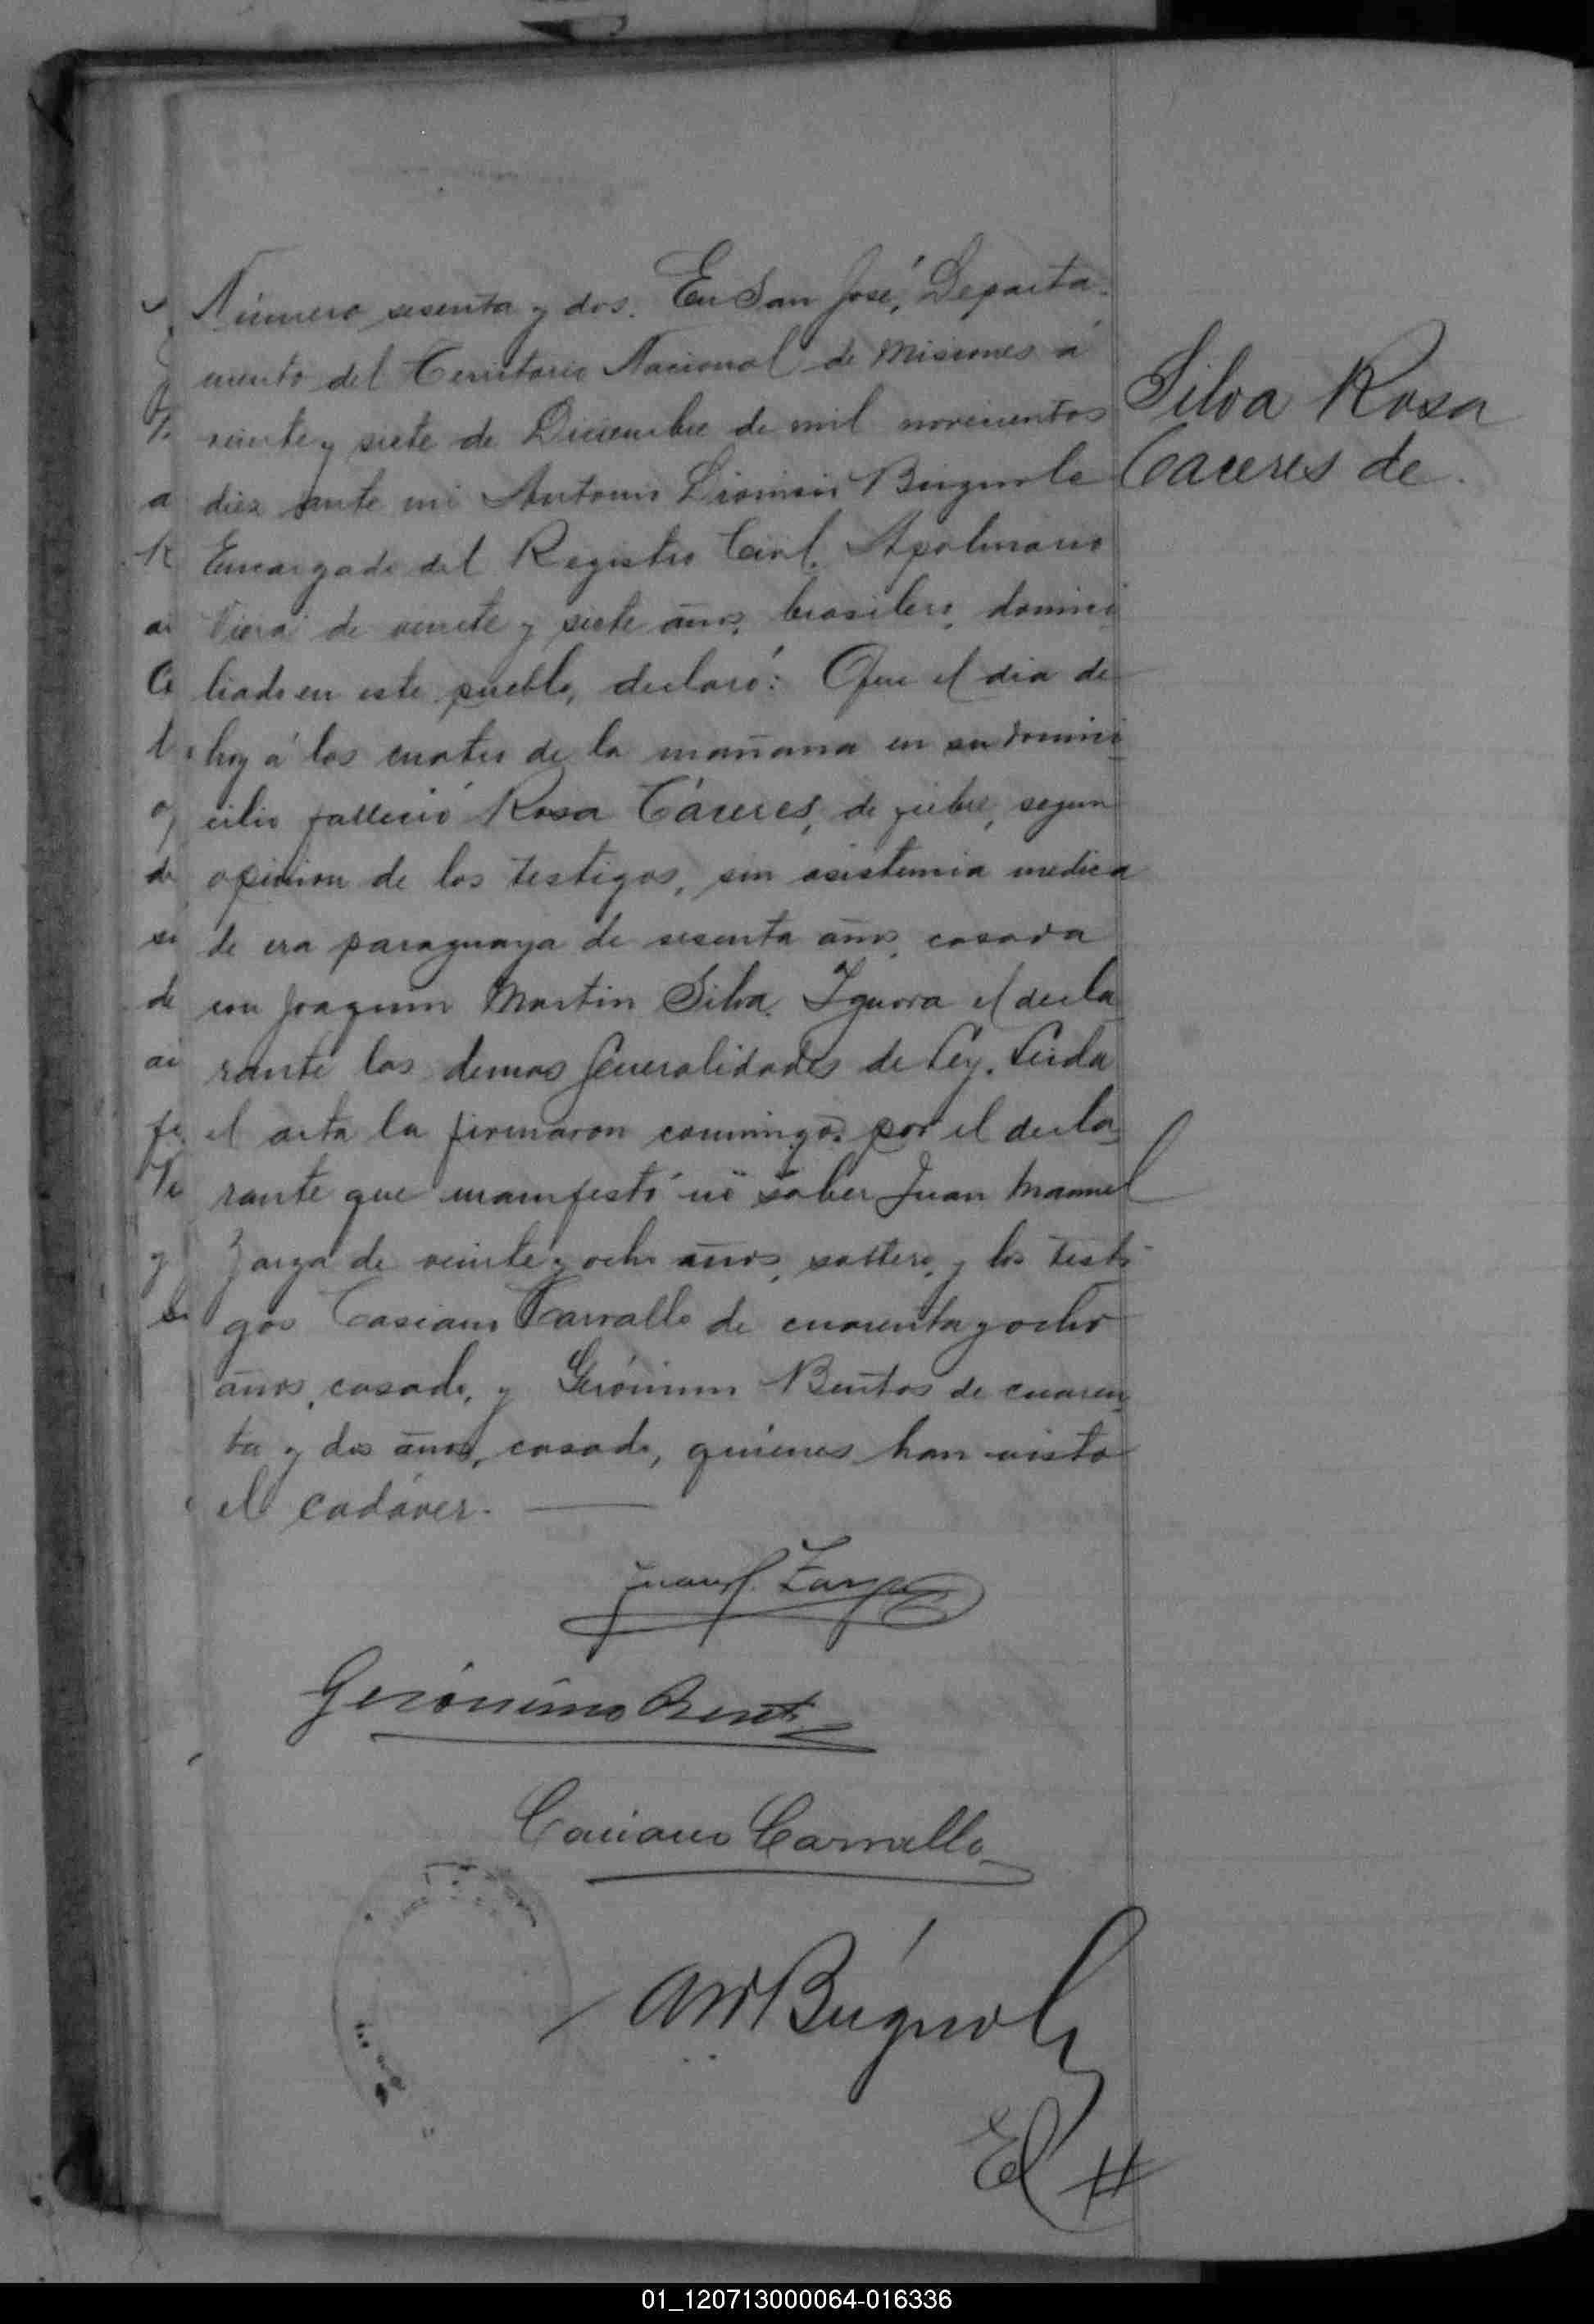 Número sesenta y dos. En San José, Departa-
mento del Territorio Nacional de Misiones á
veinte y siete de Diciembre de mil novecientos
diez ante mi Antonio Dionisio Bugnole
Encargado del Registro Civil, Apolinario
Viera de veinte y siete años, brasilero, domici
liado en este pueblo, declaró: Que el dia de
hoy á las cuatro de la mañana en su domici
cilio falleció Rosa Cáceres, de fiebre, segun
opinion de los testigos, sin asistencia medica
de era paraguaya de sesenta años, casada
con Joaquin Martin Silva. Ignora el decla
rante las demas generalidades de Ley. Leida
el acta la firmaron conmigo: por el decla
rante que manifestó no saber Juan Manuel
Zarza de veinte y ocho años, soltero, y los testi
gos Casiano Carvallo de cuarenta y ocho
años, casado, y Gerónimo Bentos de cuaren
ta y dos años, casado, quienes han visto
el cadáver.
Silva Rosa
Caceres de
Juan M. Zarza
Gerónimo Bentos
Caciano Carvallo
Bugnole
01_120713000064-016336